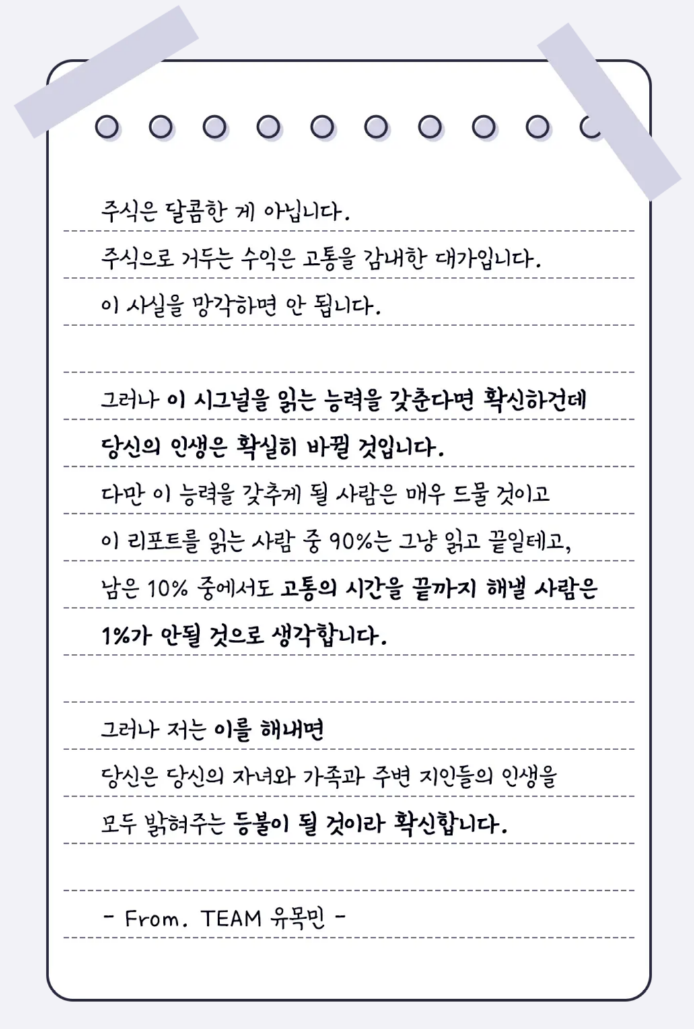 주식은 달콤한 게 아닙니다.
주식으로 거두는 수익은 고통을 감내한 대가입니다.
이 사실을 망각하면 안 됩니다.
그러나 이 시그널을 읽는 능력을 갖춘다면 확신하건데
당신의 인생은 확실히 바뀔 것입니다.
다만 이 능력을 갖추게 될 사람은 매우 드물 것이고
이 리포트를 읽는 사람 중 90%는 그냥 읽고 끝일테고,
남은 10% 중에서도 고통의 시간을 끝까지 해낼 사람은
1%가 안될 것으로 생각합니다.
그러나 저는 이를 해내면
당신은 당신의 자녀와 가족과 주변 지인들의 인생을
모두 밝혀주는 등불이 될 것이라 확신합니다.
- From. TEAM 유목민 -